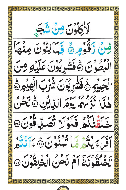 لَاٰكِلُوْنَ مِنْ شَجَرٍ
مِّنْ زَقُّوْمٍ ۙ فَمَالِـُٔوْنَ مِنْهَا
الْبُطُوْنَ ۚ فَشٰرِبُوْنَ عَلَيْهِ مِنَ
الْحَمِيْمِ ۚ فَشٰرِبُوْنَ شُرْبَ الْهِيْمِ ؕ
هٰذَا نُزُلُهُمْ يَوْمَ الدِّيْنِ ؕ نَحْنُ
خَلَقْنٰكُمْ فَلَوْلَا تُصَدِّقُوْنَ
اَفَرَءَيْتُمْ مَّا تُمْنُوْنَ ؕ ءَاَنْتُمْ
تَخْلُقُوْنَهٗۤ اَمْ نَحْنُ الْخٰلِقُوْنَ